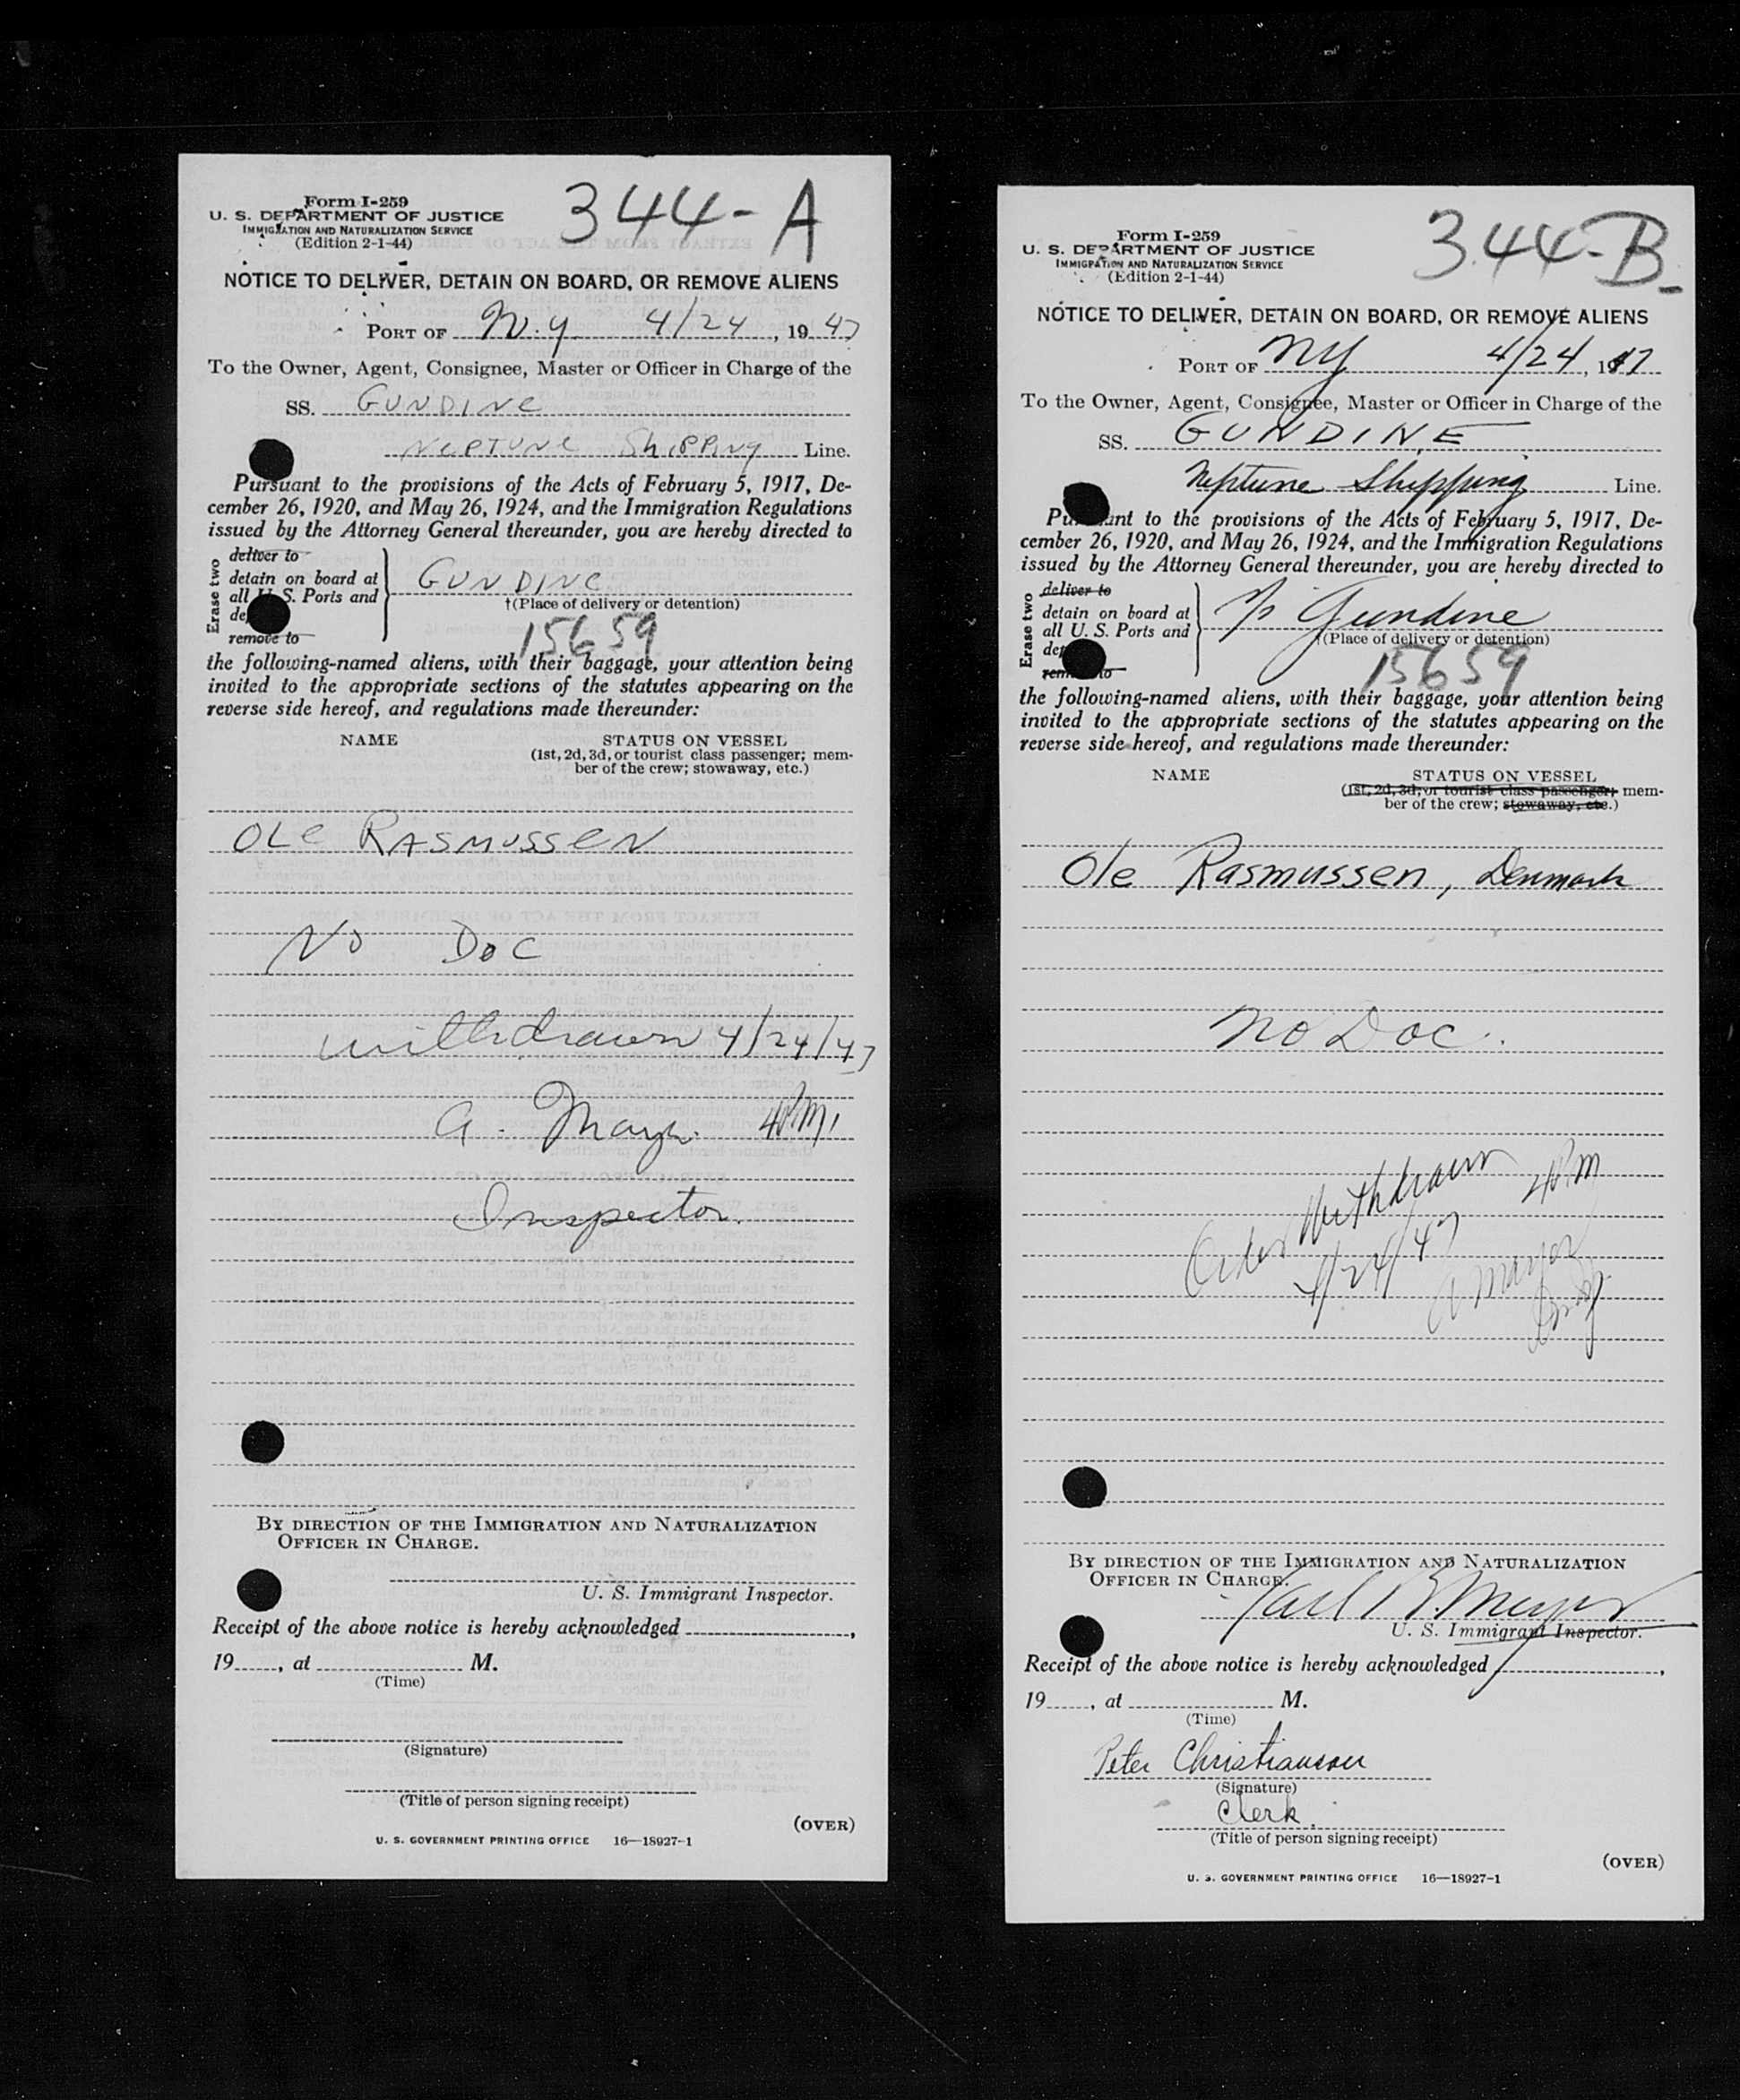 Form I-259
U. S. DEPARTMENT OF JUSTICE
IMMIGRATION AND NATURALIZATION SERVICE
(Edition 2-1-44)
344-A
NOTICE TO DELIVER, DETAIN ON BOARD, OR REMOVE ALIENS
PORT OF N.y. 4/24, 1947
To the Owner, Agent, Consignee, Master or Officer in Charge of the
SS. GUNDINE
NEPTUNE ShiPPiNg Line.
Pursuant to the provisions of the Acts of February 5, 1917, De-
cember 26, 1920, and May 26, 1924, and the Immigration Regulations
issued by the Attorney General thereunder, you are hereby directed to
Erase two
deliver to
detain on board at
all U. S. Ports and
remove to
GUNDINE
†(Place of delivery or detention)
15659
the following-named aliens, with their baggage, your attention being
invited to the appropriate sections of the statutes appearing on the
reverse side hereof, and regulations made thereunder:
NAME STATUS ON VESSEL
(1st, 2d, 3d, or tourist class passenger; mem-
ber of the crew; stowaway, etc.)
OLE RASMUSSEN
No Doc
withdrawn 4/24/47
a. 4PM.
Inspector.
BY DIRECTION OF THE IMMIGRATION AND NATURALIZATION
OFFICER IN CHARGE.
U. S. Immigrant Inspector.
Receipt of the above notice is hereby acknowledged ,
19 , at M.
(Time)
(Signature)
(Title of person signing receipt)
(OVER)
U. S. GOVERNMENT PRINTING OFFICE 16—18927-1
Form I-259
U. S. DEPARTMENT OF JUSTICE
IMMIGRATION AND NATURALIZATION SERVICE
(Edition 2-1-44)
344-B
NOTICE TO DELIVER, DETAIN ON BOARD, OR REMOVE ALIENS
PORT OF NY 4/24, 1947
To the Owner, Agent, Consignee, Master or Officer in Charge of the
SS. GUNDINE
Neptune Shipping Line.
Pursuant to the provisions of the Acts of February 5, 1917, De-
cember 26, 1920, and May 26, 1924, and the Immigration Regulations
issued by the Attorney General thereunder, you are hereby directed to
Erase two
deliver to
detain on board at
all U. S. Ports and
remove to
Gundine
†(Place of delivery or detention)
15659
the following-named aliens, with their baggage, your attention being
invited to the appropriate sections of the statutes appearing on the
reverse side hereof, and regulations made thereunder:
NAME STATUS ON VESSEL
(1st, 2d, 3d, or tourist class passenger; mem-
ber of the crew; stowaway, etc.)
Ole Rasmussen, Denmark
No Doc.
Order Withdrawn 4PM
4/24/47
BY DIRECTION OF THE IMMIGRATION AND NATURALIZATION
OFFICER IN CHARGE.
U. S. Immigrant Inspector.
Receipt of the above notice is hereby acknowledged ,
19 , at M.
(Time)
Peter Christiansen
(Signature)
Clerk.
(Title of person signing receipt)
(OVER)
U. S. GOVERNMENT PRINTING OFFICE 16—18927-1